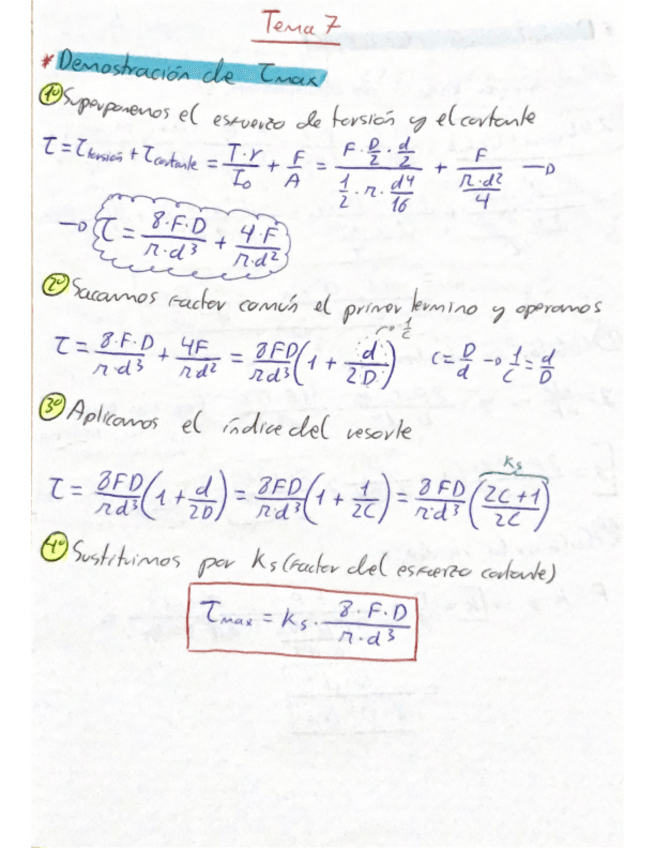 Tema 7
* Demostración de τmax
1º Superponemos el esfuerzo de torsión y el cortante
τ = τtorsión + τcortante = T·r/I₀ + F/A = (F·D/2·d/2)/(1/2·π·d⁴/16) + F/(π·d²/4) →
→ τ = 8·F·D/π·d³ + 4·F/π·d²
2º Sacamos Factor común el primer termino y operamos
τ = 8·F·D/π·d³ + 4F/πd² = 8FD/πd³ (1 + d/2D) → 1/c C = D/d → 1/C = d/D
3º Aplicamos el índice del resorte
τ = 8FD/πd³ (1 + d/2D) = 8FD/π·d³ (1 + 1/2C) = 8FD/π·d³ (2C+1/2C) Ks
4º Sustituimos por Ks (Factor del esfuerzo cortante)
τmax = Ks · 8·F·D/π·d³